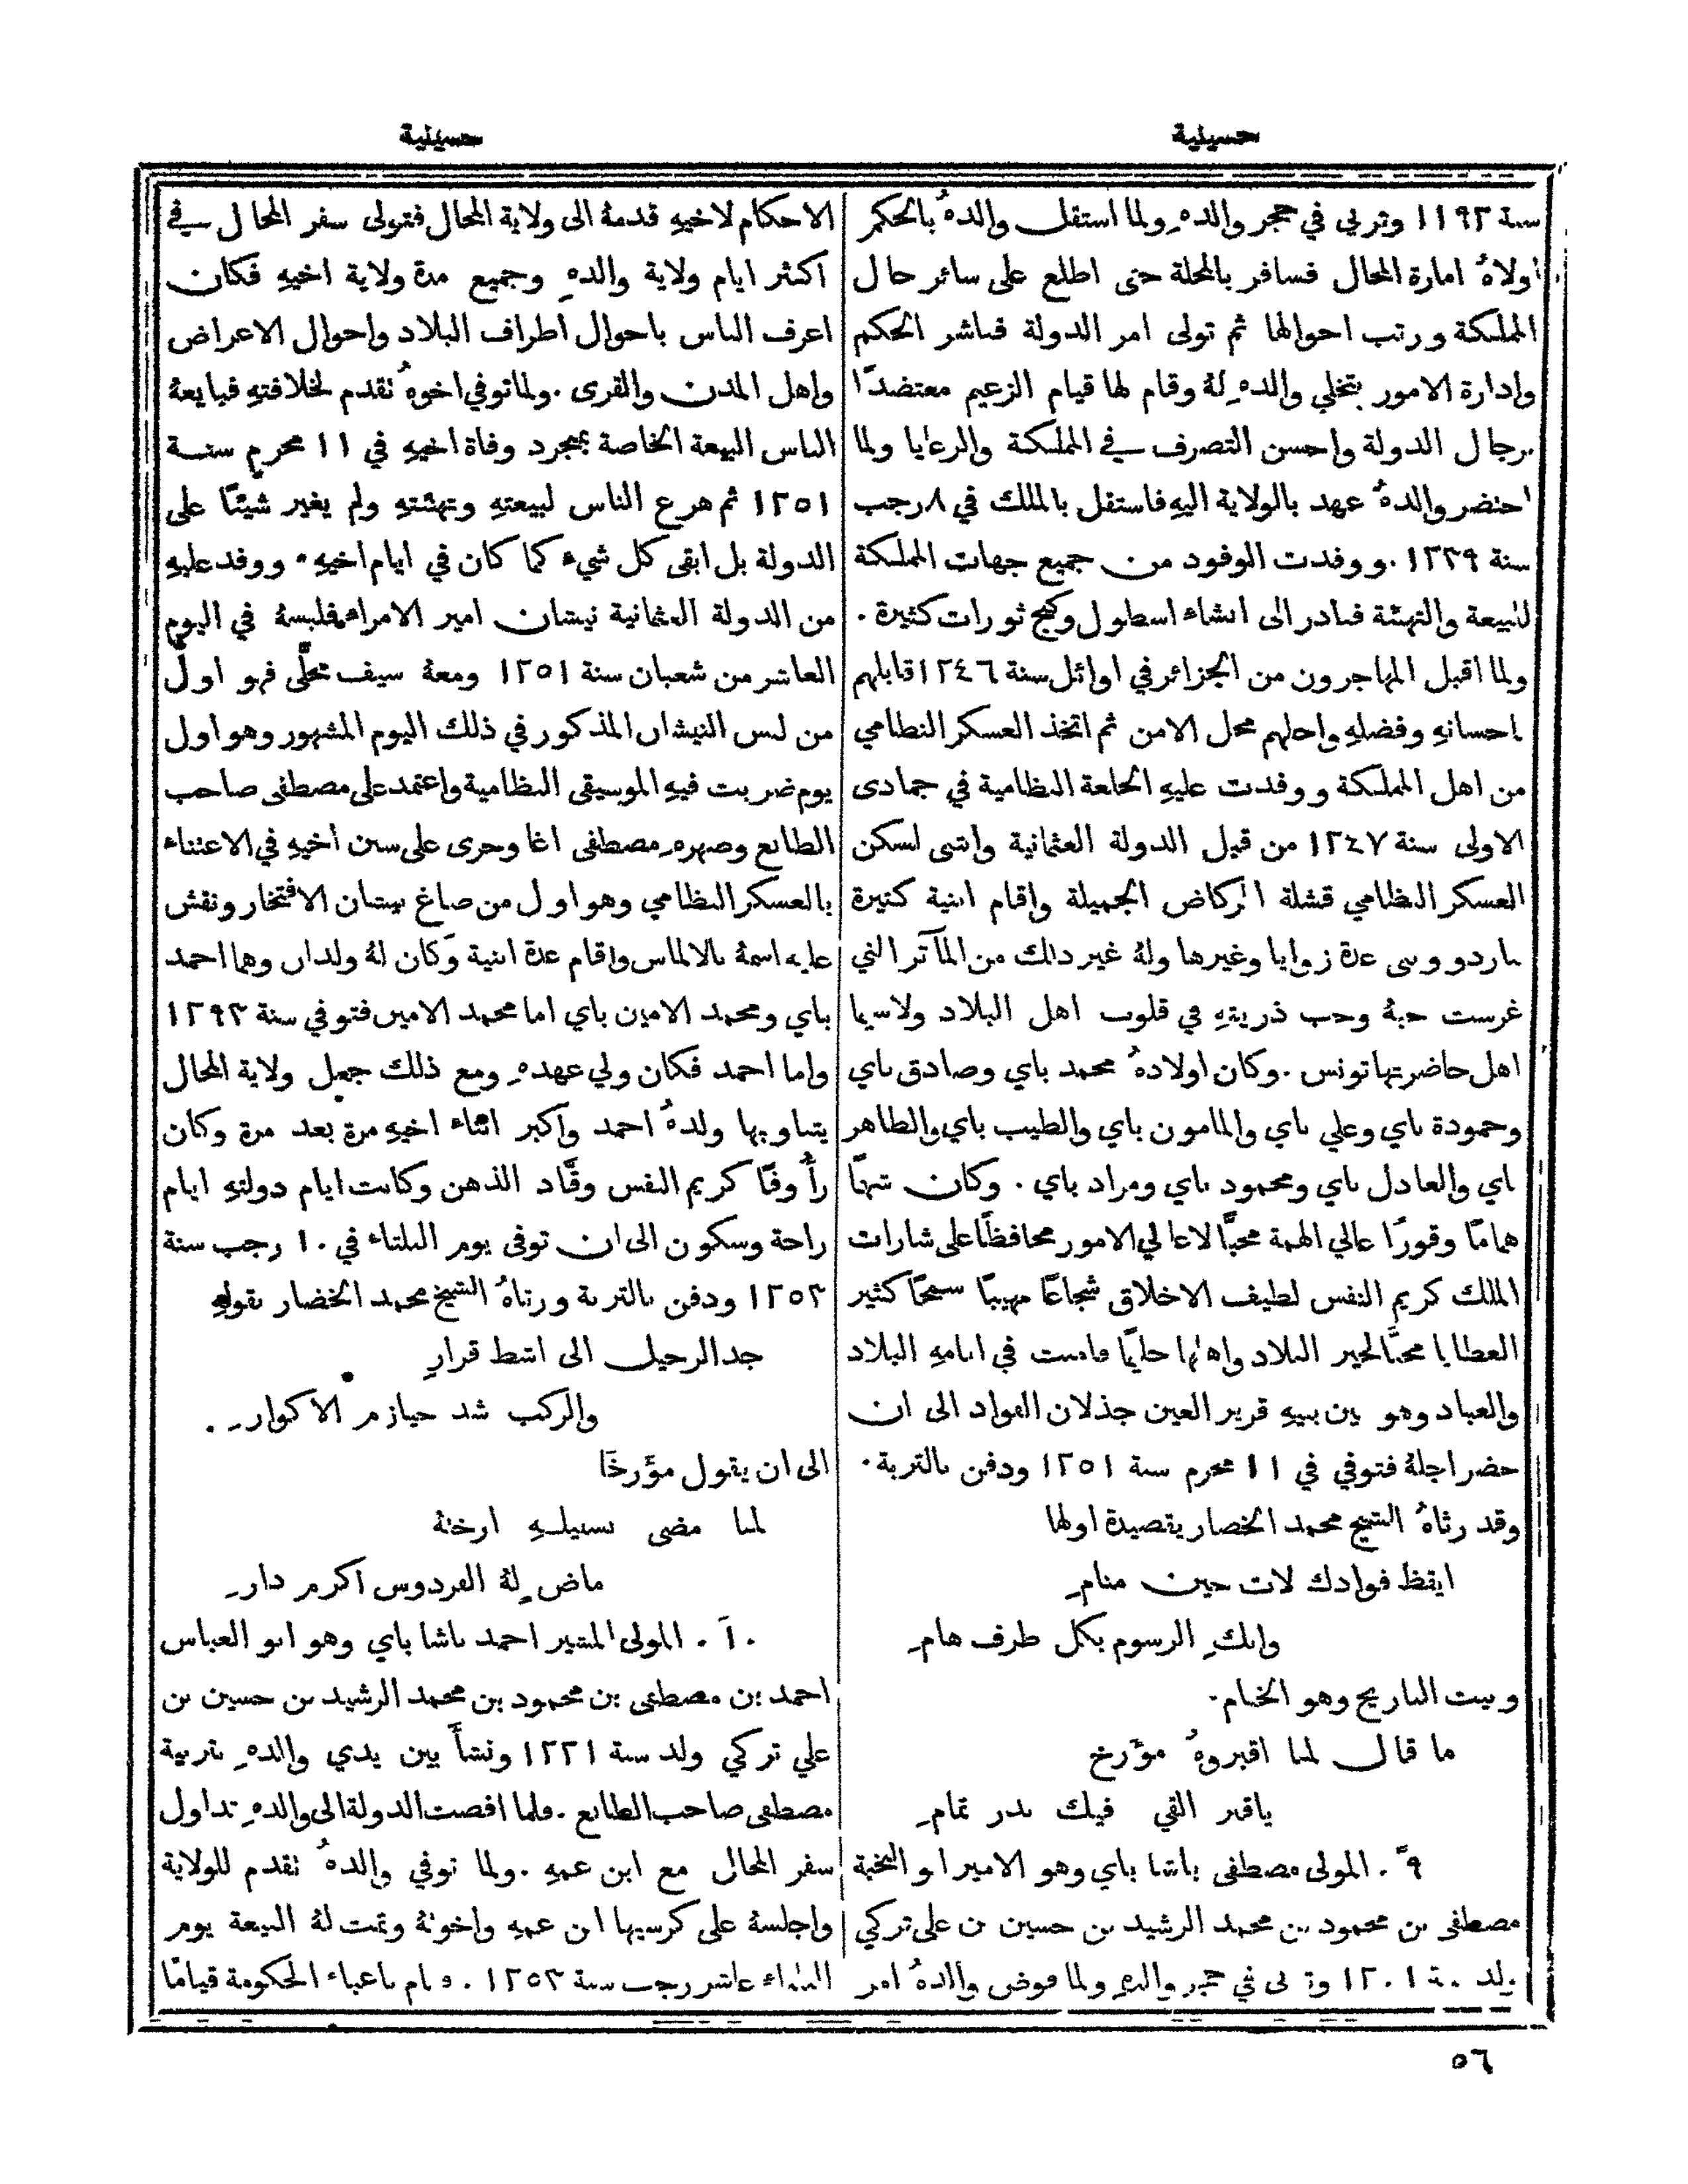 حسينية
حسينية
سنة ١١٩٢ وتربي في حجر والدهِ ولما استقل والدهُ بالحكم
اولاهُ امارة المحال فسافر بالمحلة حتى اطلع على سائر حال
المملكة ورتب احوالها ثم تولى امر الدولة فباشر الحكم
وإدارة الامور بتخلي والدهِ لهُ وقام لها قيام الزعيم معتضدًا
برجال الدولة واحسن التصرف في المملكة والرعايا ولما
احتضر والدهُ عهد بالولاية اليهِ فاستقل بالملك في ٨ رجب
سنة ١٢٣٩ . ووفدت الوفود من جميع جهات المملكة
للبيعة والتهنئة فبادر الى انشاء اسطول وكبح ثورات كثيرة .
ولما اقبل المهاجرون من الجزائر في اوائل سنة ١٢٤٦ قابلهم
باحسانهِ وفضلهِ واحلهم محل الامن ثم اتخذ العسكر النظامي
من اهل المملكة ووفدت عليهِ الخلعة النظامية في جمادى
الاولى سنة ١٢٤٧ من قبل الدولة العثمانية وانشى لسكن
العسكر النظامي قشلة المركاض الجميلة وإقام ابنية كثيرة
بباردو وبنى عدة زوايا وغيرها ولهُ غير ذلك من المآثر التي
غرست حبهُ وحب ذريتهِ في قلوب اهل البلاد ولاسيما
اهل حاضرتها تونس . وكان اولادهُ محمد باي وصادق باي
وحمودة باي وعلي باي والمامون باي والطيب باي والطاهر
باي والعادل باي ومحمود باي ومراد باي . وكان شهمًا
هامًا وقورًا عالي الهمة محبًّا لاعالي الامور محافظًا على شارات
الملك كريم النفس لطيف الاخلاق شجاعًا مهيبًا سمحًا كثير
العطايا محبًّا لخير البلاد واهلها حليمًا فامنت في ايامهِ البلاد
والعباد وهو بين بنيهِ قرير العين جذلان الفواد الى ان
حضر اجلهُ فتوفي في ١١ محرم سنة ١٢٥١ ودفن بالتربة .
وقد رثاهُ الشيخ محمد الخضار بقصيدة اولها
ايقظ فوادك لات حين منامِ
وابكِ الرسوم بكل طرف هامِ
وبيت التاريخ وهو الختام .
ما قال لما اقبروهُ مؤرخ
ياقبر القي فيك بدر تمامِ
٩ . المولى مصطفى باشا باي وهو الامير ابو النخبة
مصطفى بن محمود بن محمد الرشيد بن حسين بن علي تركي
ولد سنة ١٢٠١ وتربى في حجر والدهِ ولما فوض والدهُ امر
الاحكام لاخيهِ قدمهُ الى ولاية المحال فتولى سفر المحال في
اكثر ايام ولاية والدهِ وجميع مدة ولاية اخيهِ فكان
اعرف الناس باحوال اطراف البلاد واحوال الاعراض
واهل المدن والقرى . ولما توفي اخوهُ تقدم لخلافتهِ فبايعهُ
الناس البيعة الخاصة بمجرد وفاة اخيهِ في ١١ محرم سنة
١٢٥١ ثم هرع الناس لبيعتهِ وتهنئتهِ ولم يغير شيئًا على
الدولة بل ابقى كل شيء كما كان في ايام اخيهِ . ووفد عليهِ
من الدولة العثمانية نيشان امير الامراء فلبسهُ في اليوم
العاشر من شعبان سنة ١٢٥١ ومعهُ سيف محلَّى فهو اول
من لبس النيشان المذكور في ذلك اليوم المشهور وهو اول
يوم ضربت فيهِ الموسيقى النظامية واعتمد على مصطفى صاحب
الطابع وصهرهِ مصطفى اغا وجرى على سنن أخيهِ في الاعتناء
بالعسكر النظامي وهو اول من صاغ نيشان الافتخار ونقش
عليه اسمهُ بالالماس وإقام عدة ابنية وكان لهُ ولدان وهما احمد
باي ومحمد الامين باي اما محمد الامين فتوفي سنة ١٢٩٣
واما احمد فكان ولي عهدهِ ومع ذلك جعل ولاية المحال
يتناوبها ولدهُ احمد واكبر ابناء اخيهِ مرة بعد مرة وكان
رأُوفًا كريم النفس وقَّاد الذهن وكانت ايام دولتهِ ايام
راحة وسكون الى ان توفى يوم الثلثاء في ١٠ رجب سنة
١٢٥٣ ودفن بالتربة ورثاهُ الشيخ محمد الخضار بقولهِ
جد الرحيل الى اشط قرارِ
والركب شد حيازم الاكوارِ .
الى ان يقول مؤَرخًا
لما مضى بسبيلهِ ارختهُ
ماضٍ لهُ الفردوس اكرم دارِ
١٠ . المولى المشير احمد باشا باي وهو ابو العباس
احمد بن مصطفى بن محمود بن محمد الرشيد بن حسين بن
علي تركي ولد سنة ١٢٢١ ونشأَ بين يدي والدهِ بتربية
مصطفى صاحب الطابع . فلما افضت الدولة الى والدهِ تداول
سفر المحال مع ابن عمهِ . ولما توفي والدهُ تقدم للولاية
واجلسهُ على كرسيها ابن عمهِ واخوتهُ وتمت لهُ البيعة يوم
الثلثاء عاشر رجب سنة ١٢٥٣ . وقام باعباء الحكومة قيامًا
٥٦